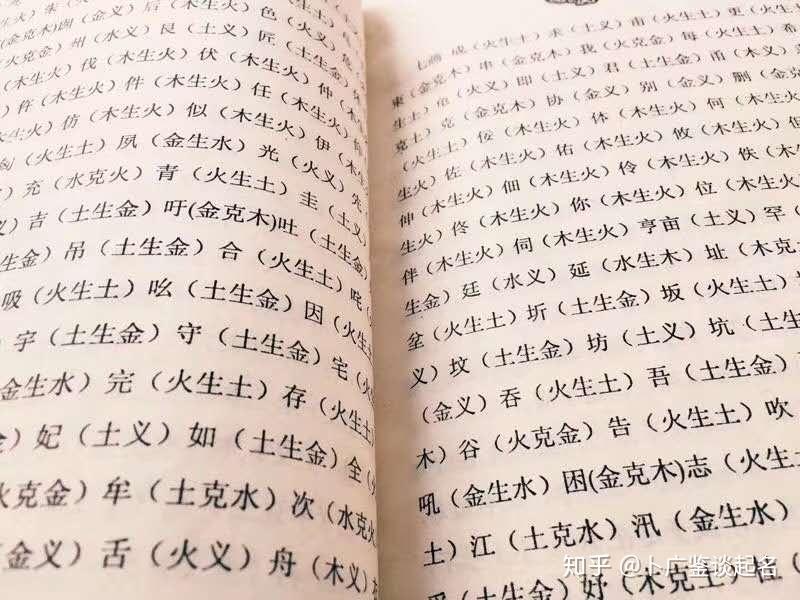 火）朱（木生火）
（金克木）囟（金义）后（木生火）色
（火克金）州（水义）艮（土义）匠
（木生火）伐（木生火）伏（木生火）
）件（木生火）任（木生火）仲
）仿（木生火）似（木生火）伊（木生火
（火生土）夙（金生水）光（火义）先
）充（水克火）青（火生土）圭（土义）
义）吉（土生金）吁(金克木)吐（土生金）
生金）吊（土生金）合（火生土）咤
吸（火生土）吆（土生金）因（火生
）宇（土生金）守（土生金）宅
金生水）完（火生土）存（火生土）
）妃（土义）如（土生金）全
火克金）牟（土克水）次（水克火
（金义）舌（火义）舟（木义）
七画 成（火生土）末（土义）甫（火生土）更（火生
（金克木）串（金克木）我（火克金）每（火生土）希
生土）皂（火义）即（土义）君（土生金）甬（木义）
克土）克（金克木）协（金义）别（金义）删（金克
（火生土）佞（木生火）体（木生火）何（木生火
生火）佐（木生火）佑（木生火）攸（木生火）但
伸（木生火）佃（木生火）伶（木生火）佚（木生火）
生火）佟（木生火）你（木生火）位（木生火）
伴（木生火）伺（木生火）亨亩（土义）罕（
生金）廷（水义）延（水生木）址（木克
坌（火生土）圻（土生金）坂（火生土）
义）坟（土生金）坊（土义）坑（土生
（金义）吞（火生土）吾（土生金）
木）谷（火克金）告（火生土）吹（
吼（金生水）困(金克木)志（火生土
土）江（土克水）汛（金生水）
（土生金）妤（木克土）
知乎 @卜广鉴谈起名